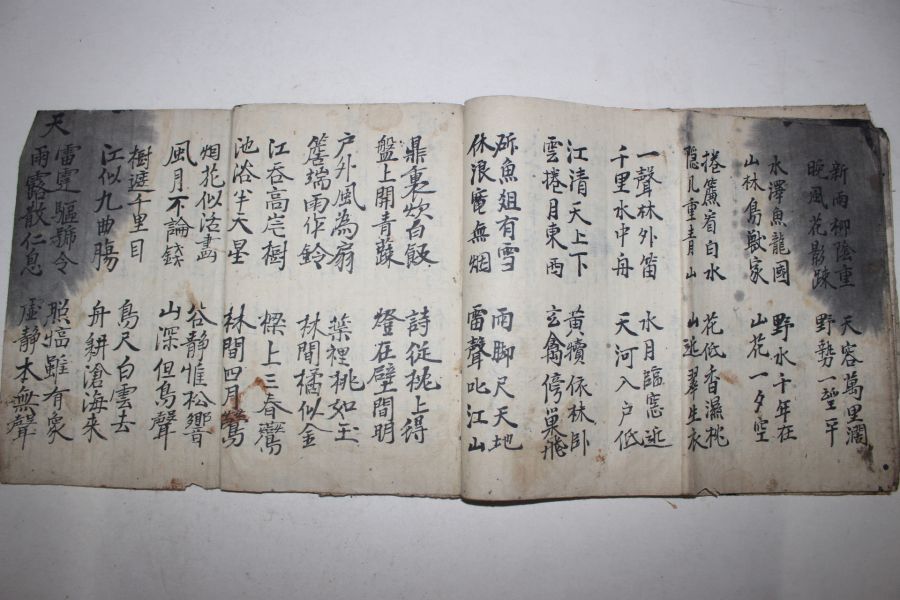 新雨柳陰重 天容萬里濶
晚風花影踈 野勢一望平
水澤魚龍國 野水千年在
山林鳥獸家 山花一夕空
捲簾肴白水 花低香濕桃
隱几重青山 山近翠生衣
一聲林外笛 水月臨窓近
千里水中舟 天河入户低
江清天上下 黄犢依林臥
雲捲月東西 玄禽傍巢飛
斫魚俎有雪 雨脚尺天地
休浪竈無烟 雷聲叱江山
鼎裏炊白飯 詩從桃上得
盤上開青蔬 燈在壁間明
户外風為扇 葉裡桃如玉
簷端雨作鈴 林間橘似金
江吞高岸樹 樑上三春鷰
池浴半天星 林間四月鶯
烟花似活畵 谷静惟松響
風月不論錢 山深但鳥聲
樹遮千里目 鳥尺白雲去
江似九曲腸 舟耕滄海来
天
雷霆驅號令 照雖有象
雨露散仁息 虛静本無聲